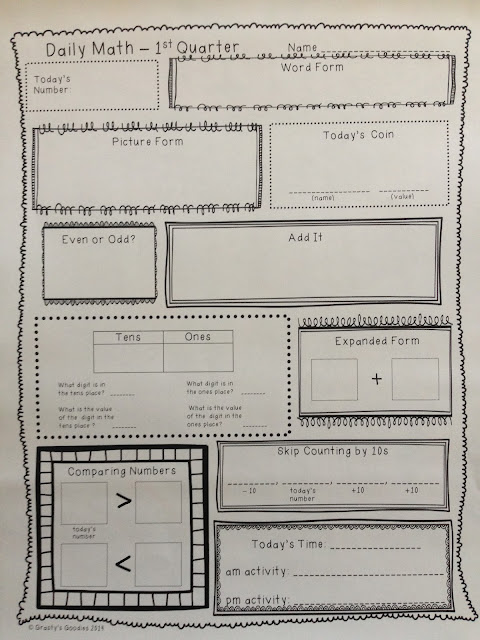 Daily Math – 1st Quarter
Name
Today's
Number
Word Form
Picture Form
Today's Coin
(name) (value)
Even or Odd?
Add It
Tens Ones
What digit is in
the tens place?
What digit is in
the ones place?
What is the value
of the digit in the
tens place?
What is the value
of the digit in the
ones place?
Expanded Form
+
Comparing Numbers
>
today's
number
<
Skip Counting by 10s
-10 today's
number +10 +10
Today's Time:
am activity:
pm activity:
© Grasty's Goodies 2014